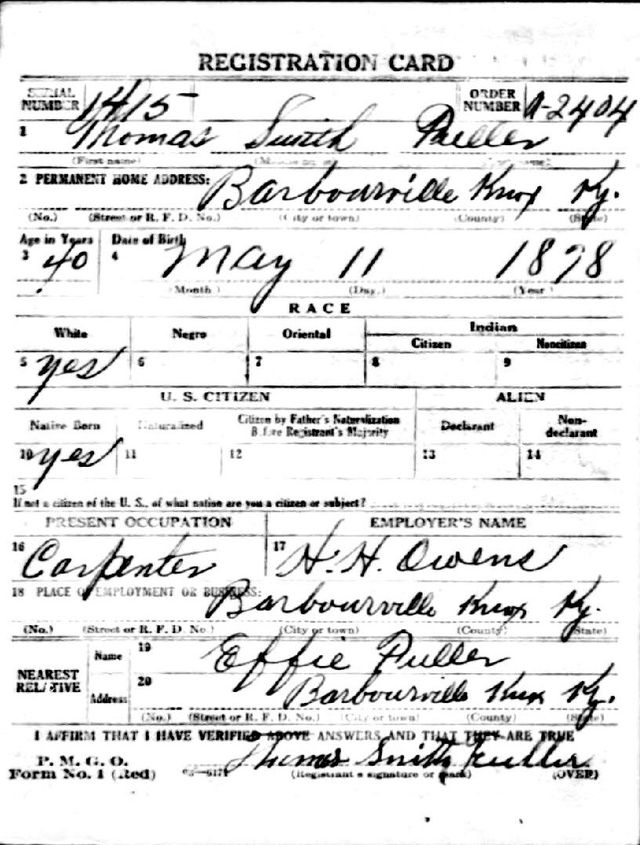 REGISTRATION CARD
SERIAL NUMBER 1415 ORDER NUMBER A-2404
1 Thomas Smith Fuller
(First name) (Middle name) (Last name)
2 PERMANENT HOME ADDRESS: Barbourville Knox Ky.
(No.) (Street or R. F. D. No.) (City or town) (County) (State)
Age in Years Date of Birth
3 40 4 May 11 1878
(Month) (Day) (Year)
RACE
White Negro Oriental Indian
Citizen Noncitizen
5 yes 6 7 8 9
U. S. CITIZEN ALIEN
Native Born Naturalized Citizen by Father's Naturalization Before Registrant's Majority Declarant Non-declarant
10 yes 11 12 13 14
15
If not a citizen of the U. S., of what nation are you a citizen or subject?
PRESENT OCCUPATION EMPLOYER'S NAME
16 Carpenter 17 H. H. Owens
18 PLACE OF EMPLOYMENT OR BUSINESS:
Barbourville Knox Ky.
(No.) (Street or R. F. D. No.) (City or town) (County) (State)
NEAREST RELATIVE Name 19 Effie Fuller
Address 20 Barbourville Knox Ky.
(No.) (Street or R. F. D. No.) (City or town) (County) (State)
I AFFIRM THAT I HAVE VERIFIED ABOVE ANSWERS AND THAT THEY ARE TRUE
P. M. G. O.
Form No. 1 (Red) Thomas Smith Fuller
(Registrant's signature or mark) (OVER)